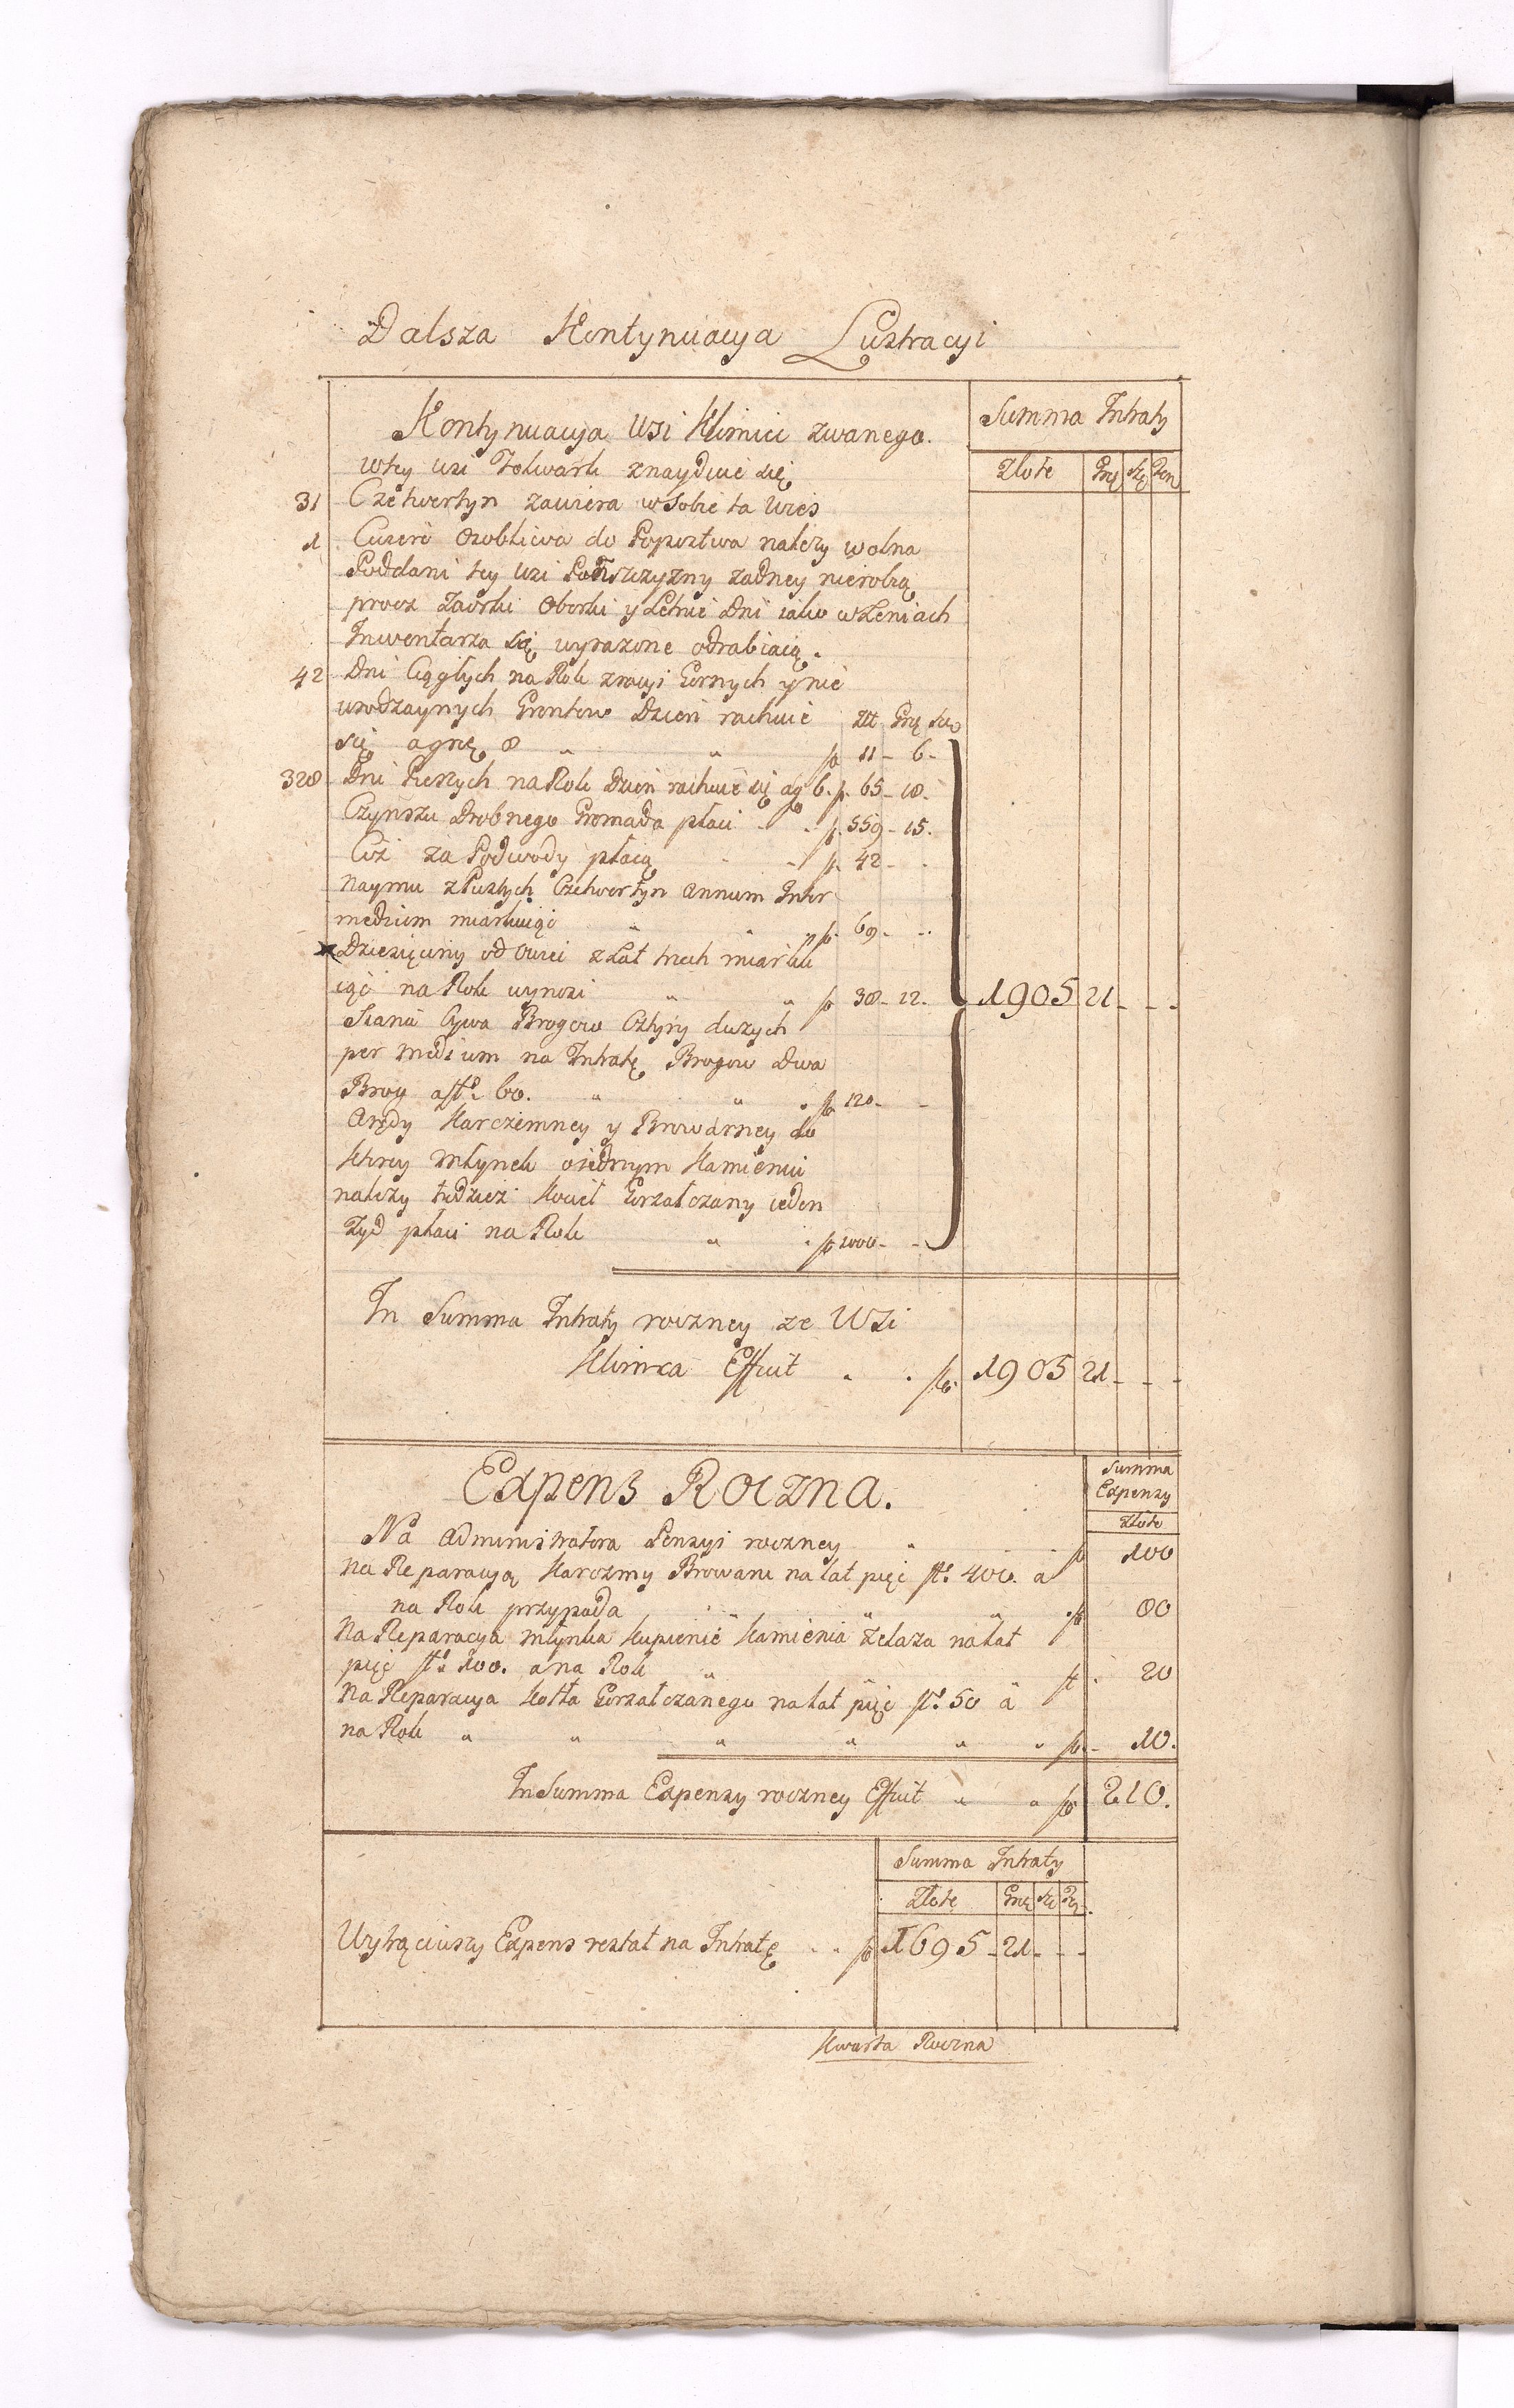 Dalsza Kontynuacya Lustracyi
Kontynuacya Wsi Klimiec zwanego.
Summa Intraty
Złote Grę Szę Den
wtey wsi Folwark znayduie się
31 Czetwertyn zawiera w sobie ta Wieś
1 Cwierć Osobliwa do Popostwa należy wolna
Poddani tey wsi Pańszczyzny żadney nierobią
procz Zaorki Oborki y Letnie Dni iako w Leniach
Inwentarza Są wyrażone odrabiaią.
42 Dni Ciągłych na Rok zracyi Gornych y nie
urodzaynych Grontow Dzień rachuie Złt Grę Sze
się agrę 8 " " fl 11 - 6 -
328 Dni Pieszych na Rok Dzień rachuie się ag 6. f. 65 - 18.
Czynszu Drobnego Gromada płaci . . f. 559 - 15.
Ciż za Podwody płacą . . f. 42 - .
Naymu z Pustych Czetwertyn annum Inter
medium miarkuiąc " " f. 69 - ..
Dziesięciny od Owiec z Lat trzech miarku
iąc na Rok wynosi " " f 38 - 12. 1905 21 - - -
Siana Bywa Brogow Cztyry dużych
per medium na Intratę Brogow Dwa
Brog a fl. 60. " " . f 120 - -
Arędy Karczemney y Browarney do
Ktorey Młynek o iednym Kamieniu
należy tudzież Kocieł Gorzałczany ieden
Zyd płaci na Rok " . f 1000 - -
In Summa Intraty roczney ze Wsi
Klimca Efficit . . f. 1905 21 - - -
Expens Roczna.
Summa
Expensy
Złote
Na Administratora Pensyi roczney " - - f 100
na Reparacyą Karczmy Browaru na lat pięć fl. 400. a
na Rok przypada . " " . f 80
Na Reparacya Młynka Kupienie Kamienia Zelaza na lat
pięć fl. 100. a na Rok " " f . 20
Na Reparacya Kotła Gorzałczanego na lat pięć fl. 50 a
na Rok " " " " " " f. - 10.
In Summa Expensy roczney Efficit " " f 210.
Summa Intraty
Złote Grę Sze Dę
Wytrąciwszy Expens restat na Intratę . . f 1695 - 21 - - -
Kwarta Roczna